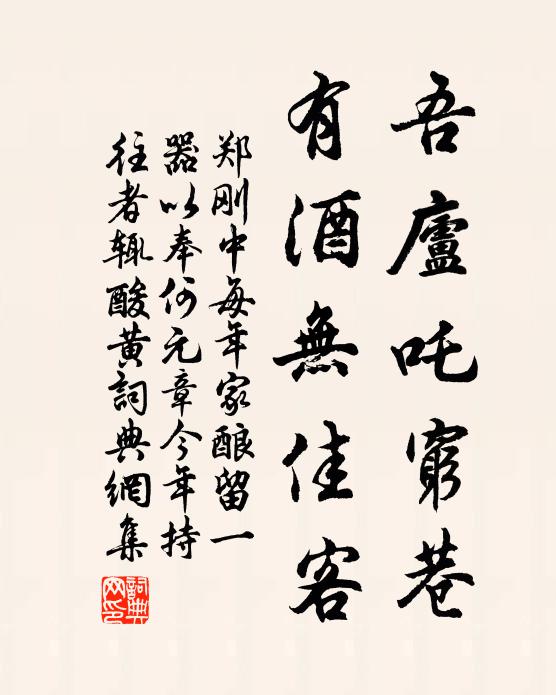 吾廬吒窮巷
有酒無佳客
郑刚中每年家酿留一
器以奉何元章今年持
往者辄酸黄詞典網集
詞典网印